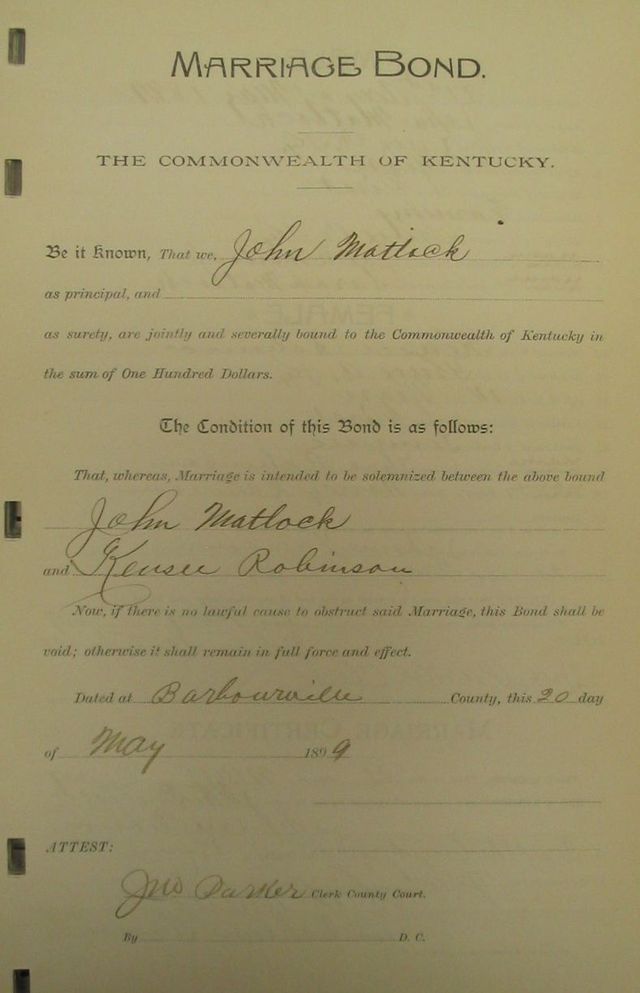 MARRIAGE BOND.
THE COMMONWEALTH OF KENTUCKY.
Be it Known, That we, John Matlock
as principal, and
as surety, are jointly and severally bound to the Commonwealth of Kentucky in
the sum of One Hundred Dollars.
The Condition of this Bond is as follows:
That, whereas, Marriage is intended to be solemnized between the above bound
John Matlock
and Kensee Robinson
Now, if there is no lawful cause to obstruct said Marriage, this Bond shall be
void; otherwise it shall remain in full force and effect.
Dated at Barbourville County, this 20 day
of May 1899
ATTEST:
Jno Parker Clerk County Court.
By D. C.